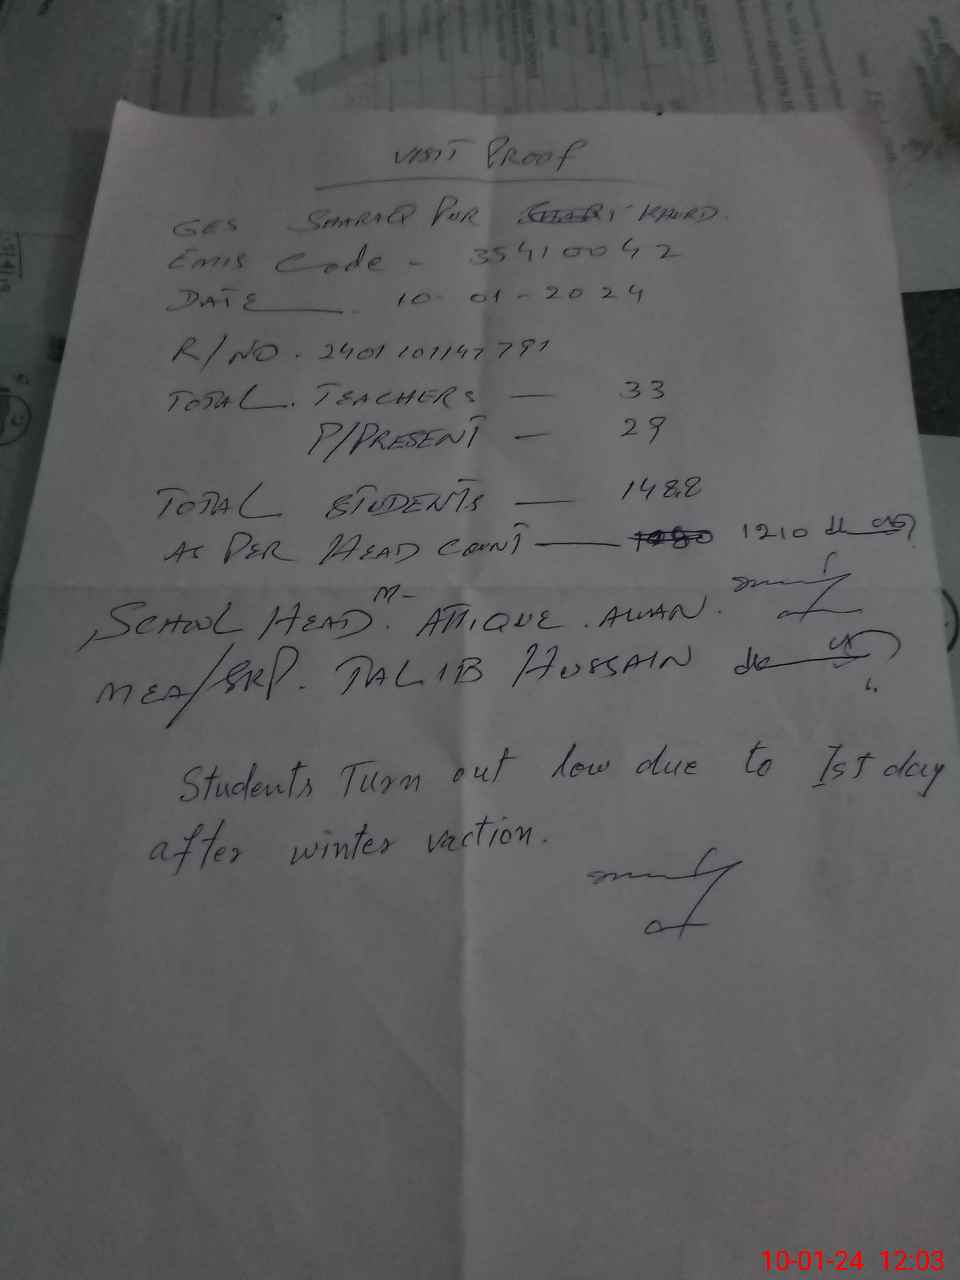 VISIT PROOF
GES SHARAQ PUR KHURD.
EMIS Code - 35410042
DATE 10-01-2024
R/NO. 2401101147791
TOTAL. TEACHERS — 33
P/PRESENT — 29
TOTAL STUDENTS — 1488
AS PER HEAD COUNT — 1210
SCHOOL HEAD. M- ATTIQUE. AWAN.
MEA/SRP. TALIB HUSSAIN
Students Turn out low due to Ist day
after winter vaction.
10-01-24 12:03